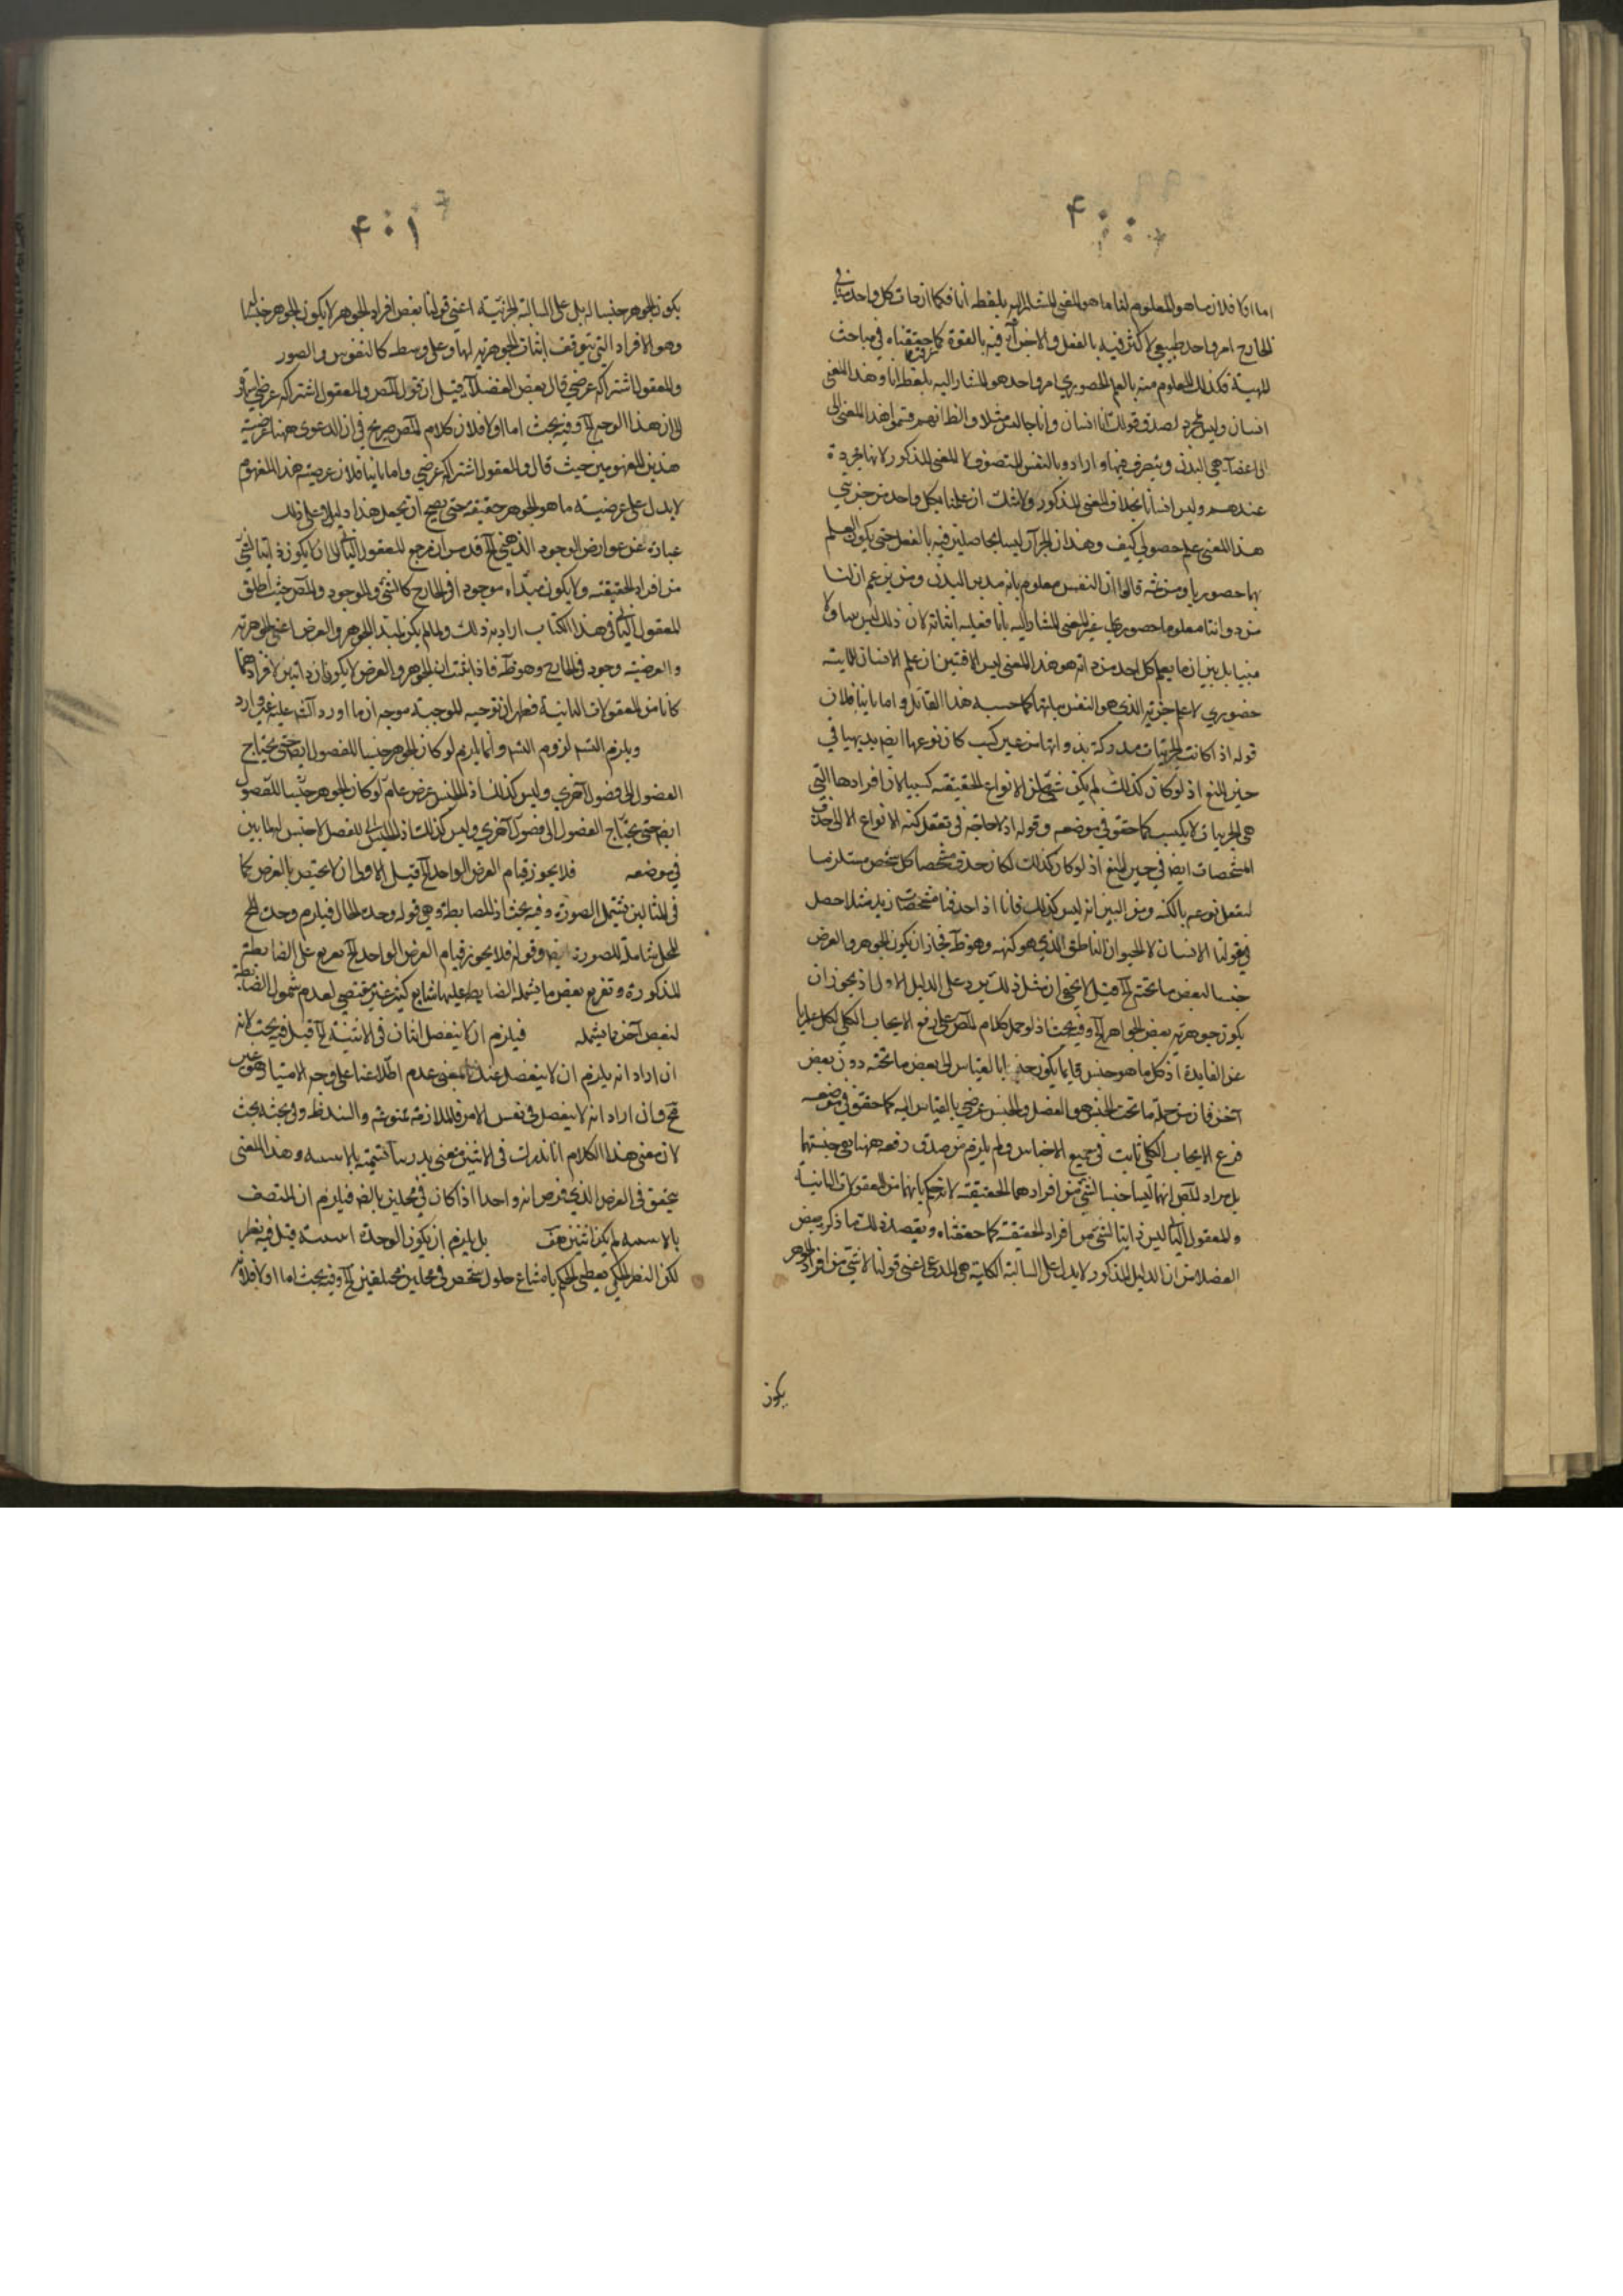 ۴۰۰
اما اولا فلان ما هو المعلوم لنا ما هو المعنى المشار اليه بلفظه انا فكما ان ذات كل واحد منا في
الخارج امر واحد طبيعي لا كثرة فيه بالفعل والاجزآء فيه بالقوة كما حققناه في مباحث
المهية فكذلك المعلوم منه بالعلم الحضوري امر واحد هو المشار اليه بلفظ انا وهذا المعنى
انسان وليس بمجرد لصدق قولك انا انسان وانا جالس مثلا والظ انهم قسموا هذا المعنى الى
اعضآء هي البدن و يتصرف فيها و ارادوا بالنفس المتصرف لا المعنى المذكور لانها مجردة
عندهم وليس انسانا بخلاف المعنى المذكور ولا شك ان علمنا بكل واحد من جزئي
هذا المعنى علم حصولي كيف وهذان الجزآن ليسا بحاصلين فيه بالفعل حتى يكون العلم
بهما حضوريا ومن ثمه قالوا ان النفس معلوم بانه مدبر البدن ومن يزعم ان لنا
من ذواتنا معلوما حضوريا غير المعنى المشار اليه بانا فعليه اثباته لان ذلك ليس بينا ولا
مبينا بل بين ان ما يعلم كل احد من ذاته هو هذا المعنى ليس الا فتبين ان علم الانسان
حضوري لا علم جزئيه الذي هو النفس بذاتها كما حسبه هذا القائل و اما ثانيا فلان
قوله اذا كانت الجزئيات مدركة بذواتها من غير كسب كان نوعها ايضا بديهيا في
حيز المنع اذ لو كان كذلك لم يكن شئ من الانواع الحقيقته كسبيا لان افرادها التي
هي الجزئيات لا يكتسب كما حقق في موضعه و قوله اذ لا حاجة في تعقل كنه الانواع الا الى حذف
المشخصات ايضا في حيز المنع اذ لو كان كذلك لكان حذف مشخصات كل شخص مستلزما
لتعقل نوعه بالكنه ومن البين انه ليس كذلك فانا اذا حذفنا مشخصات زيد مثلا حصل
في عقولنا الانسان لا الحيوان الناطق الذي هو كنهه وهو ظ فجاز ان يكون الجوهر والعرض
جنسا لبعض ما تحته الخ قيل لا يخفى ان مثل ذلك يرد على الدليل الاول اذ يجوز ان
يكون جوهرية بعض الجواهر الخ وفيه بحث اذ لو حمل كلام المص على رفع الايجاب الكلي لكان عاريا
عن الفايدة اذ كل ما هو جنس فانما يكون جنسا بالقياس الى بعض ما تحته دون بعض
آخر فان من جملة ما تحت الجنس هو الفصل والجنس عرضي بالقياس اليه كما حقق في موضعه
فرفع الايجاب الكلي ثابت في جميع الاجناس ولم يلزم من صدق رفعه ههنا نفي جنسيتهما
بل مراد المص انهما ليسا جنسا لشئ من افرادهما الحقيقته لانه حكم بانهما من المعقولات الثانية
والمعقول الثاني ليس ذاتيا لشئ من افراده الحقيقته كما حققناه و بقصد ذلك ما ذكر بعض
الفضلا من ان الدليل المذكور لا يدل على السالبة الكلية هي المدعى اعني قولنا لا شئ من افراد الجوهر
يكون
۴۰۱
يكون الجوهر جنسا له بل على السالبة الجزئية اعني قولنا بعض افراد الجوهر لا يكون الجوهر جنسا لها
وهو الافراد التي يتوقف اثبات الجوهرية لها على وسط كالنفوس والصور
والمعقول اشتراكه عرضي قال بعض الفضلآء قيل ان قول المص والمعقول اشتراكه عرضي
الى ان هذا الوجه الخ وفيه بحث اما اولا فلان كلام المص صريح في ان الدعوى ههنا عرضية
هذين المفهومين حيث قال والمعقول اشتراكه عرضي واما ثانيا فلان عرضية هذا المفهوم
لا يدل على عرضية ما هو الجوهر حقيقة حتى يصح ان يجعل هذا دليلا على ذلك
عبارة عن عوارض الوجود الذهني الخ قد مر ان مرجع المعقول الثاني الى ان لا يكون ذاتيا لشئ
من افراده الحقيقته ولا يكون مبداه موجودا في الخارج كالشئ والموجود والمص حيث اطلق
المعقول الثاني في هذا الكتاب اراد به ذلك ولما لم يكن لمبدا الجوهر والعرض اعني الجوهرية
والعرضية وجود في الخارج وهو ظ فاذا ثبت ان الجوهر والعرض لا يكونان ذاتيين لافرادهما
كانا من المعقولات الثانية فظهر ان توجيه الموجه موجه ان ما اورد آنفا عليه غير وارد
ويلزم التسلسل لزوم التسلسل وانما يلزم لو كان الجوهر جنسا للفصول ايضا حتى يحتاج
الفصول الى فصول آخرى وليس كذلك اذ الجنس عرض عام لو كان الجوهر جنسا للفصول
ايضا حتى يحتاج الفصول الى فصول آخرى وليس كذلك اذ الجنس للفصل لا جنس لها كما بين
في موضعه فلا يجوز قيام العرض الواحد الخ قيل الاولى ان لا يختص بالعرض كما
في المثالين فتشمل الصورة وفيه بحث اذ الضابطة وهي قوله وحدة الحال فيلزم وحدة المحل
للمحل شاملة للصورة ايضا و قوله فلا يجوز قيام العرض الواحد الخ تفريع على الضابطة
المذكورة و تفريع بعض ما يشمله الضابط عليها شايع كثير غير مقتضى لعدم شمول الضابطة
لبعض آخر مما يشمله فيلزم ان لا ينفصل اثنان في الاثنينية الخ قيل فيه بحث لانه
ان اراد انه يلزم ان لا ينفصل عندنا بمعنى عدم اطلاعنا على وجه الامتياز وهو غير
مح وان اراد انه لا ينفصل في نفس الامر فالملازمة ممنوعة والسند ظ وفي بحثه بحث
لان معنى هذا الكلام
يتحقق في العرض الذي فرض انه واحد اذا كان في محلين بالضرورة فيلزم ان المتصف
لم يكن اثنين هف بل يلزم ان يكون الوحدة قيل فيه نظر
لكن النظر الحكمي يعطى الحكم بامتناع حلول شخص في محلين مختلفين الخ وفيه بحث اما اولا فلان